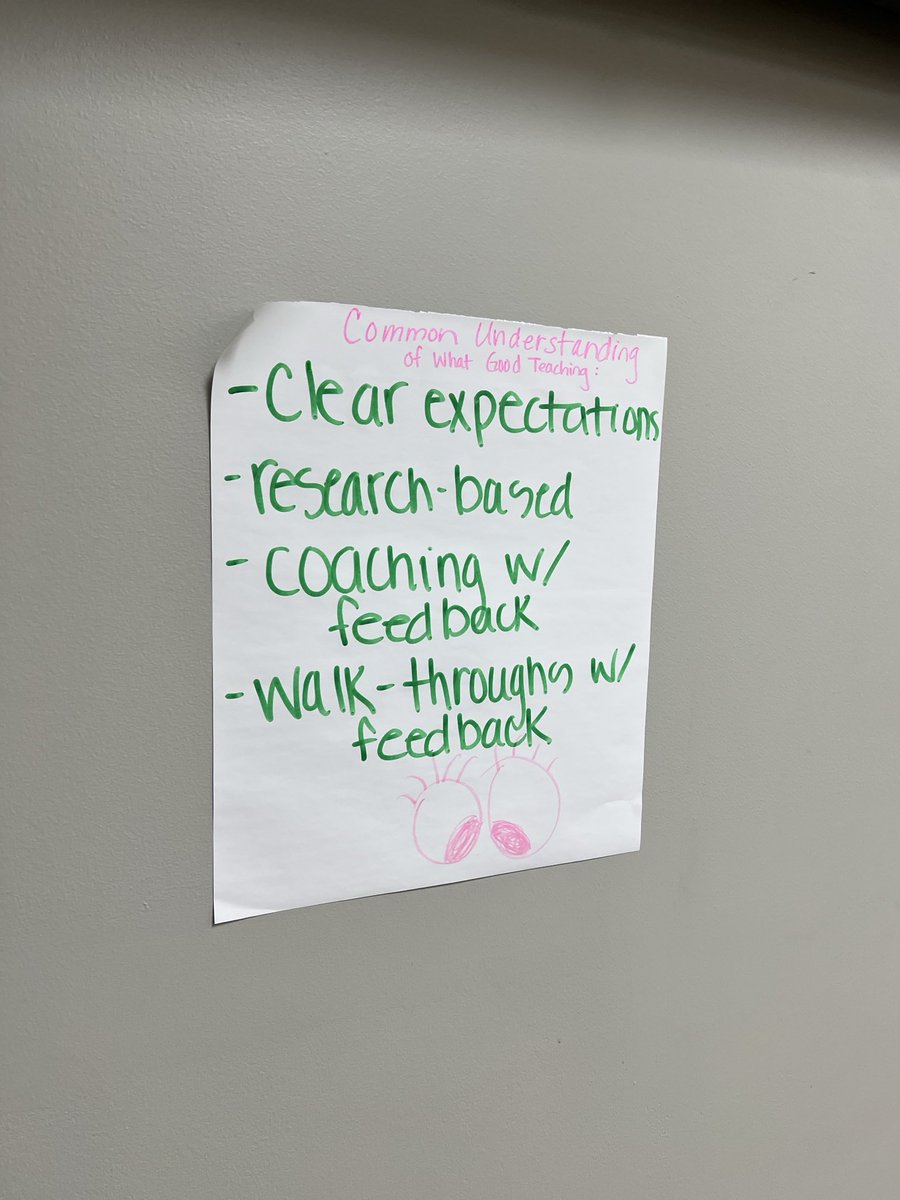 Common Understanding
of What Good Teaching:
- Clear expectations
- research-based
- coaching w/
feedback
- Walk-throughs w/
feedback